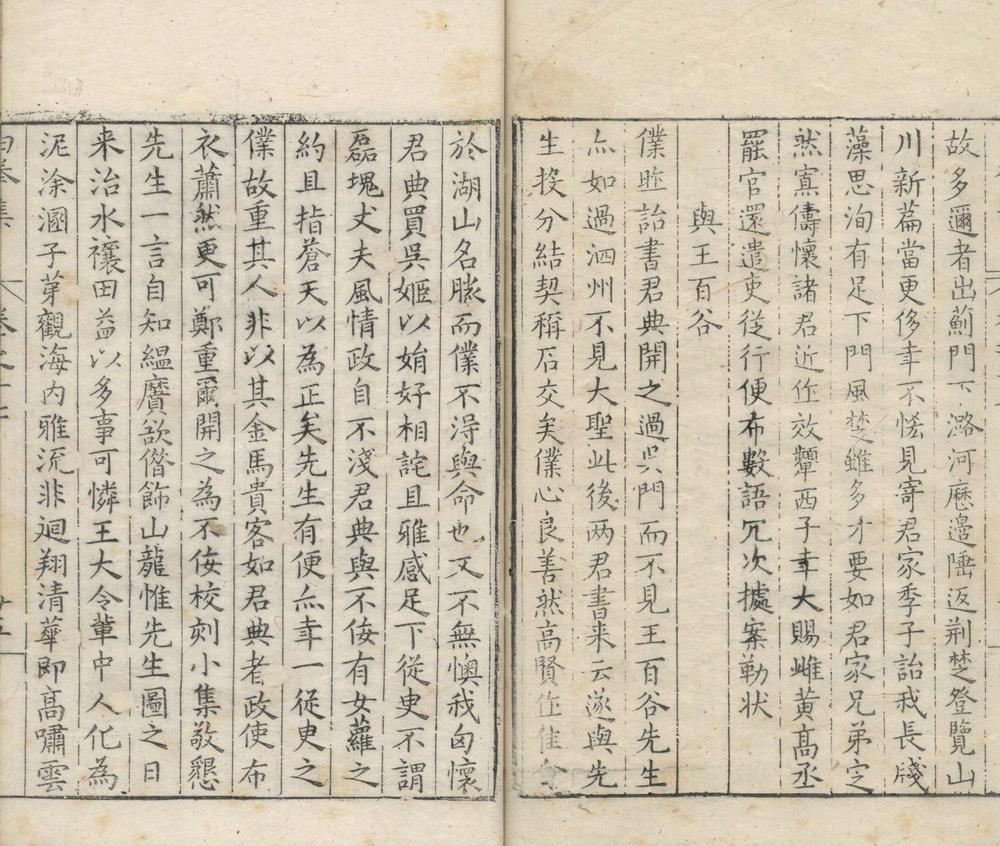 故多邇者出薊門下潞河歷邊陲返荆楚登覽山
川新篇當更侈幸不恡見寄君家季子詒我長牋
藻思洵有足下門風楚雖多才要如君家兄弟定
然寡儔懷諸君近作效顰西子幸大賜雌黃高丞
罷官還遣吏從行便布數語冗次據案勒狀
與王百谷
僕暱詒書君典開之過吳門而不見王百谷先生
亦如過泗州不見大聖此後兩君書来云遂與先
生投分結契稱石交矣僕心良善然高賢作佳會
於湖山名勝而僕不得與命也又不無懊我匈懷
君典買吳姬以娋好相詫且雅感足下從臾不謂
磊塊丈夫風情政自不淺君典與不侫有女蘿之
約且指蒼天以為正矣先生有便亦幸一從臾之
僕故重其人非以其金馬貴客如君典者政使布
衣蕭然更可鄭重爾開之為不侫校刻小集敬懇
先生一言自知縕黂欲僭飾山龍惟先生圖之日
来治水禳田益以多事可憐王大令輩中人化為
泥涂溷子苐觀海内雅流非迴翔清華即高嘯雲
白榆集 卷之 廿五